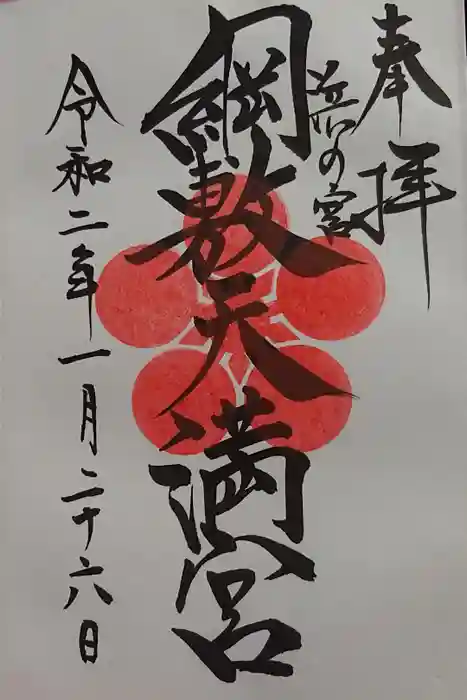 奉拝
浜の宮
綱敷天満宮
令和二年一月二十六日